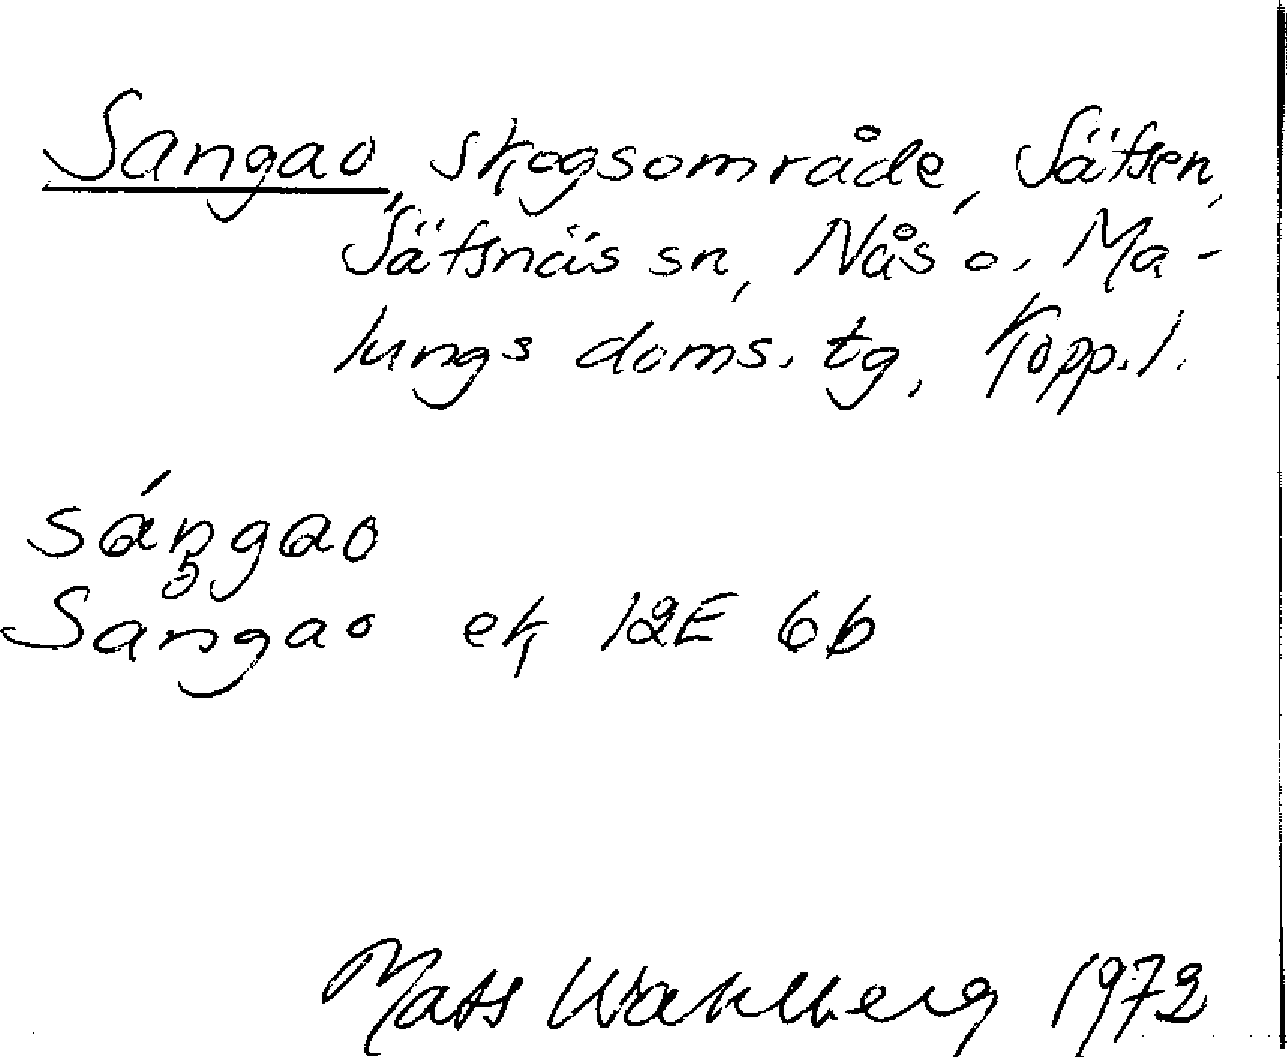 Sangao, skogsområde, Säfsen,
Säfsnäs sn, Nås o. Ma-
lungs doms. tg, Kopp. l.
sángao
Sangao ek 12E 6b
Mats Wahlberg 1972